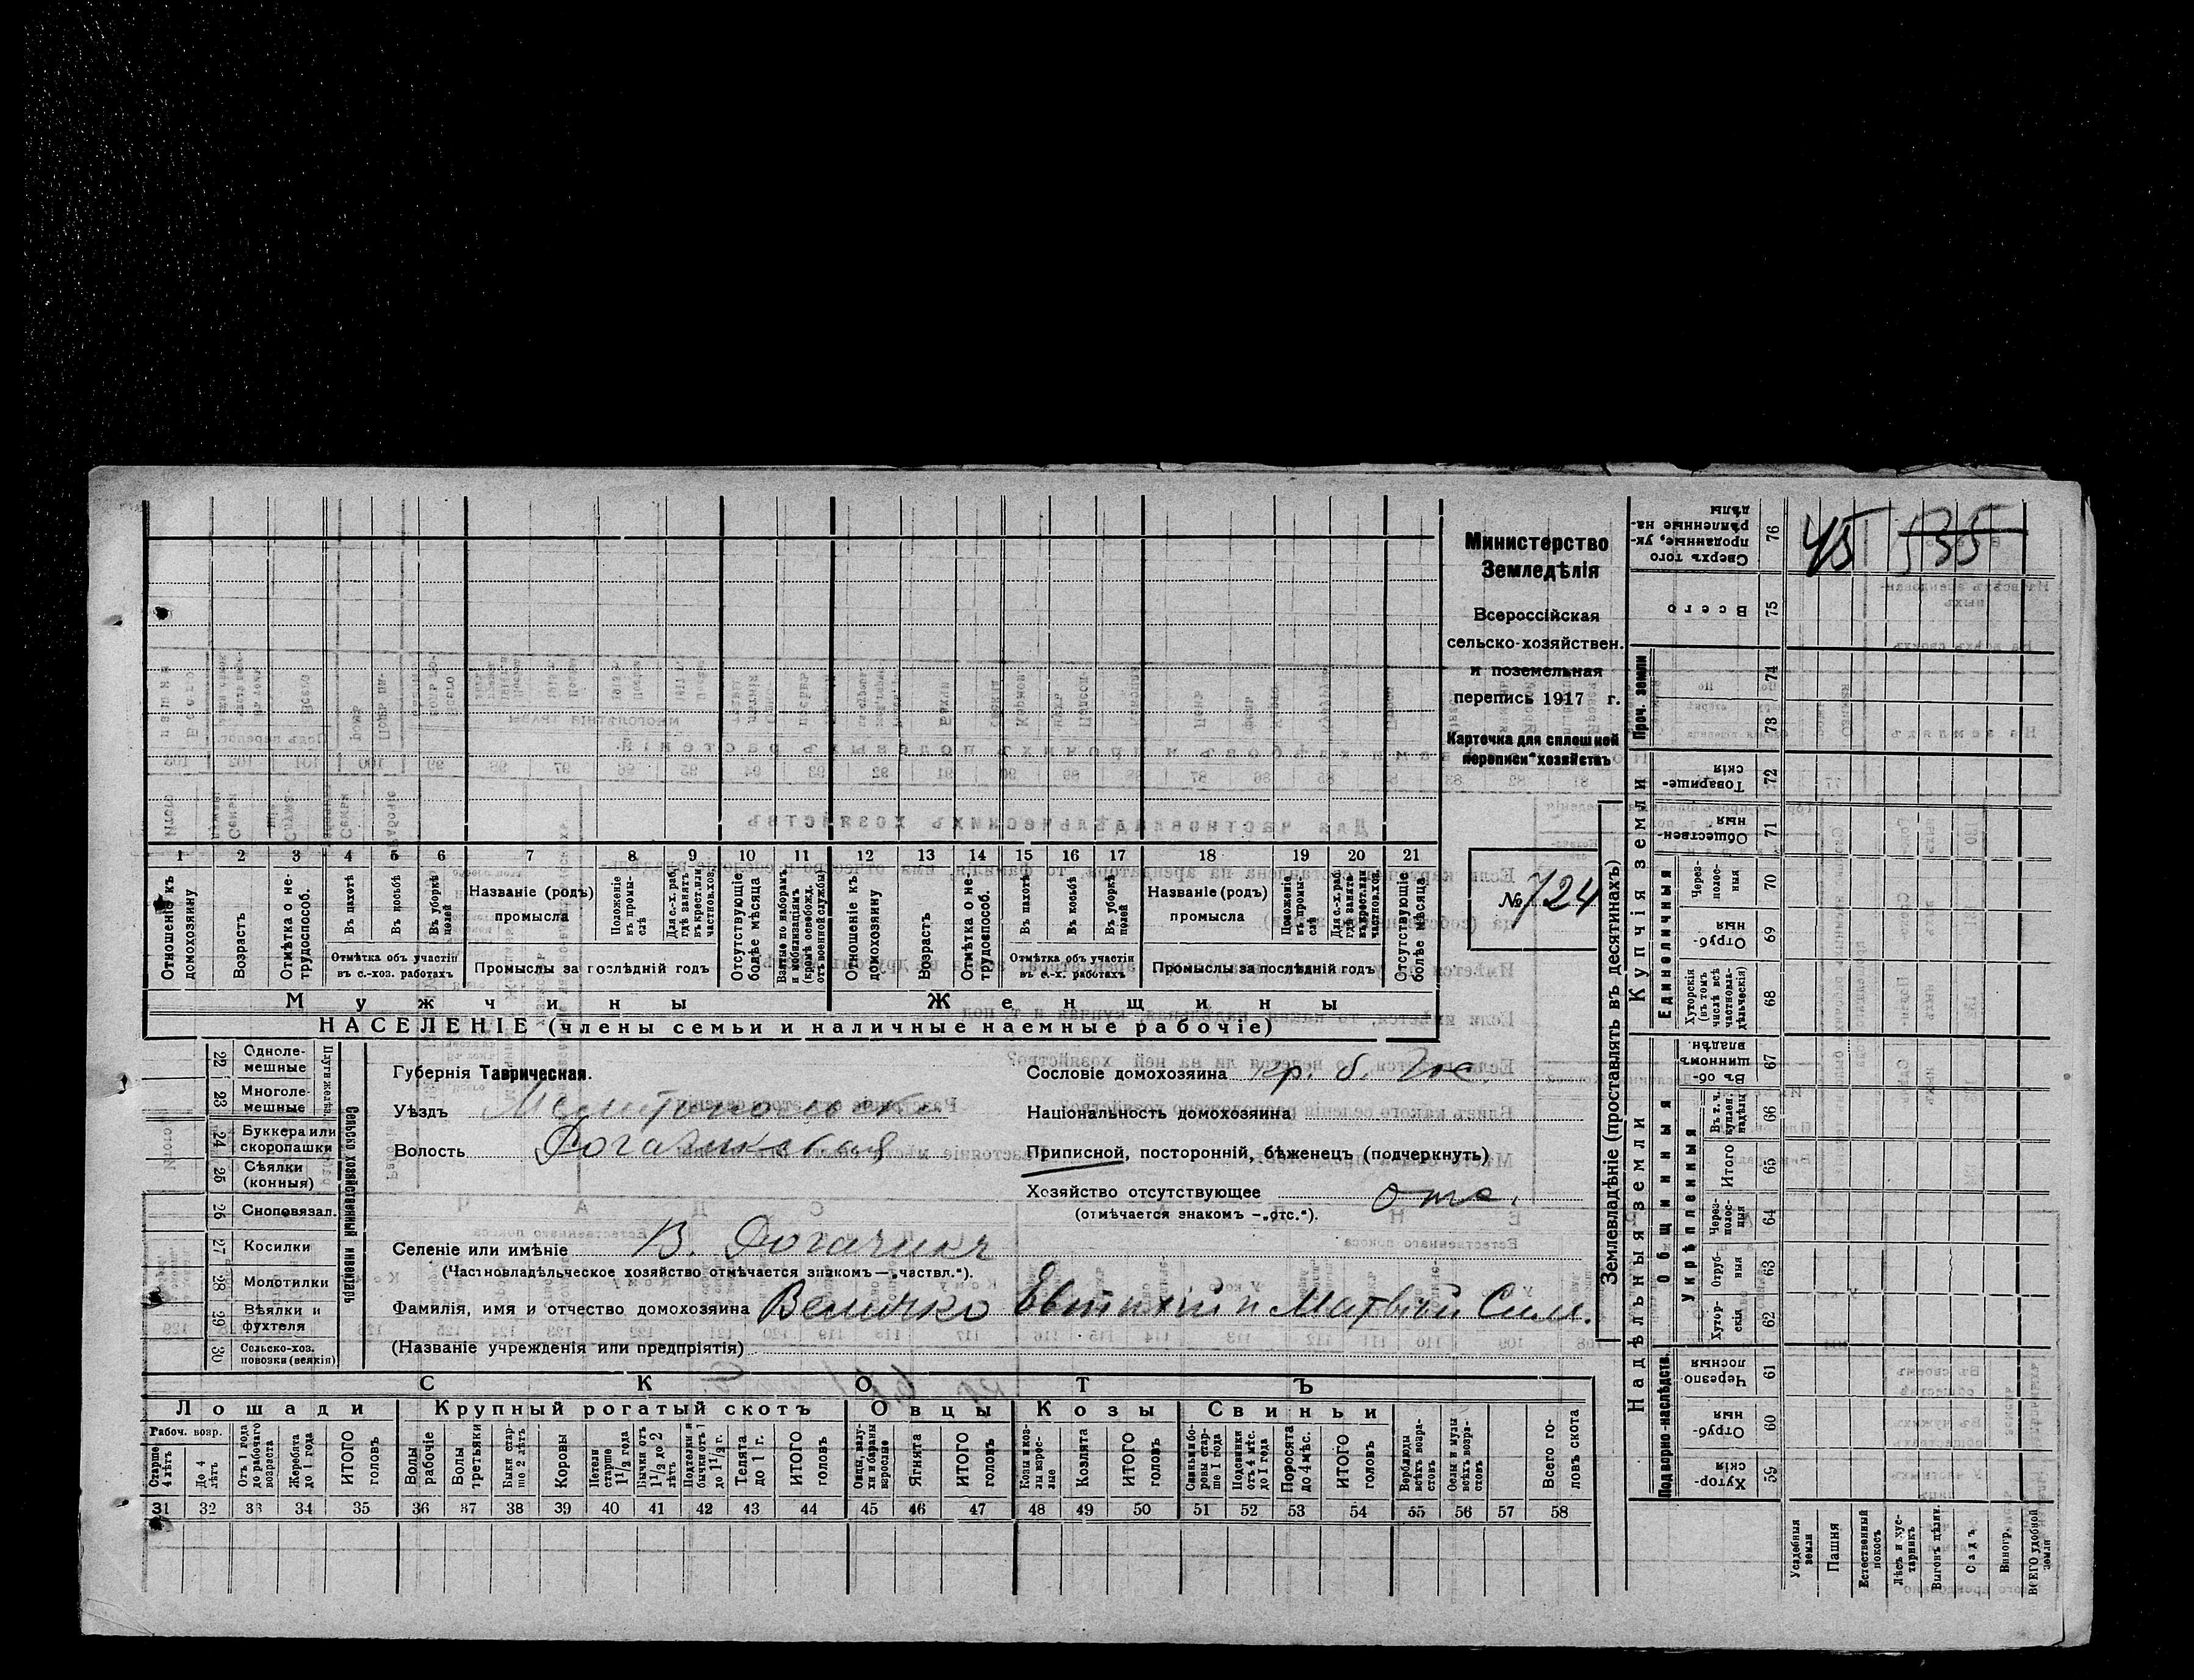 45 535
Министерство
Земледѣлія
Всероссійская
сельско-хозяйствен.
и поземельная
перепись 1917 г.
Карточка для сплошной
переписи хозяйствъ
№ 724
1 2 3 4 5 6 7 8 9 10 11 12 13 14 15 16 17 18 19 20 21
Отношеніе къ домохозяину
Возрастъ
Отмѣтка о не-трудоспособ.
Въ пахотѣ
Въ косьбѣ
Въ уборкѣ полей
Отмѣтка объ участіи въ с.-хоз. работахъ
Названіе (родъ) промысла
Положеніе въ промы-слѣ
Для с.-х. раб. гдѣ занятъ въ крест. или частнов. хоз.
Промыслы за послѣдній годъ
Отсутствующіе болѣе мѣсяца
Взятые по наборамъ и мобилизаціямъ (кромѣ освобожд. отъ военной службы)
Отношеніе къ домохозяину
Возрастъ
Отмѣтка о не-трудоспособ.
Въ пахотѣ
Въ косьбѣ
Въ уборкѣ полей
Отмѣтка объ участіи въ с.-х. работахъ
Названіе (родъ) промысла
Положеніе въ промы-слѣ
Для с.-х. раб. гдѣ занята въ крест. или частнов. хоз.
Промыслы за послѣдній годъ
Отсутствующіе болѣе мѣсяца
Мужчины Женщины
НАСЕЛЕНІЕ (члены семьи и наличные наемные рабочіе)
Сельско хозяйственный инвентарь
Плуги желѣз.
22 Одноле-мешные
23 Многоле-мешные
24 Буккера или скоропашки
25 Сѣялки (конныя)
26 Сноповязал.
27 Косилки
28 Молотилки
29 Вѣялки и фухтеля
30 Сельско-хоз. повозки (всякія)
Губернія Таврическая.
Уѣздъ
Волость Рогачикская
Селеніе или имѣніе В. Рогачикъ
(Частновладѣльческое хозяйство отмѣчается знакомъ—„частвл.“).
Фамилія, имя и отчество домохозяина Величко Евтихій и Матвѣй Сим.
(Названіе учрежденія или предпріятія)
Сословіе домохозяина кр. б.
Національность домохозяина
Приписной, посторонній, бѣженецъ (подчеркнуть)
Хозяйство отсутствующее отс.
(отмѣчается знакомъ —„отс.“).
СКОТЪ
Лошади Крупный рогатый скотъ Овцы Козы Свиньи
Рабоч. возр.
Старше 4 лѣтъ
До 4 лѣтъ
Отъ 1 года до рабочаго возраста
Жеребята до 1 года
ИТОГО головъ
Волы рабочіе
Волы третьяки
Быки стар-ше 2 лѣтъ
Коровы
Нетели старше 1½ года
Бычки отъ 1½ до 2 лѣтъ
Подтелки и бычки отъ 1 до 1½ г.
Телята до 1 г.
ИТОГО головъ
Овцы, валу-хи и бараны взрослые
Ягнята
ИТОГО головъ
Козы и коз-лы взрос-лые
Козлята
ИТОГО головъ
Свиньи и бо-ровы стар-ше 1 года
Подсвинки отъ 4 мѣс. до 1 года
Поросята до 4 мѣс.
ИТОГО головъ
Верблюды всѣхъ возра-стовъ
Ослы и мулы всѣхъ возра-стовъ
Всего го-ловъ скота
31 32 33 34 35 36 37 38 39 40 41 42 43 44 45 46 47 48 49 50 51 52 53 54 55 56 57 58
Землевладѣніе (проставлять въ десятинахъ)
Надѣльныя земли Купчія земли Проч. земли
Подворно-наслѣдств. Общинныя Единоличныя
Укрѣпленныя
Хутор-скія 59
Отруб-ныя 60
Черезпо-лосныя 61
Хутор-скія 62
Отруб-ныя 63
Через-полос-ныя 64
Итого 65
Въ т. ч. куплен. надѣлы 66
Въ об-щинномъ владѣн. 67
Хуторскія (въ томъ числѣ всѣ частновла-дѣльческія) 68
Отруб-ныя 69
Через-полос-ныя 70
Обществен-ныя 71
Товарище-скія 72
73
74
Всего 75
Сверхъ того проданные, ук-рѣпленные на-дѣлы 76
Усадебныя земли
Пашня
Естественный покосъ
Лѣсъ и кус-тарникъ
Выгонъ цѣлин.
Садъ
Виногр.
ВСЕГО удобной земли